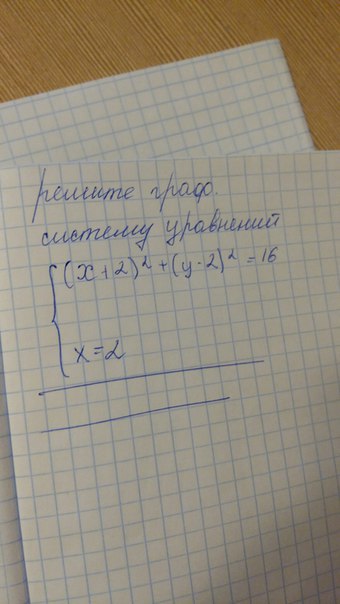 решите графо.
систему уравнений
(x+2)² + (y-2)² = 16
x = 2